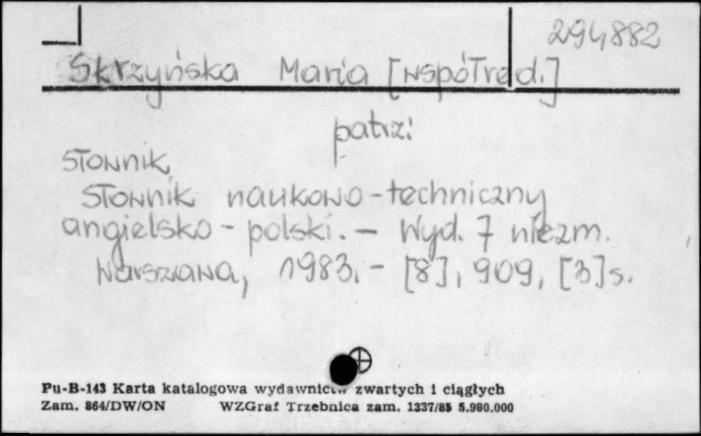 294882
Skrzyńska Maria [współred.]
patrz:
Słownik
Słownik naukowo-techniczny
angielsko-polski. - Wyd. 7 niezm.
Warszawa, 1983. - [8], 909, [3] s.
Pu-B-143 Karta katalogowa wydawnictw zwartych i ciągłych
Zam. 864/DW/ON WZGraf Trzebnica zam. 1337/85 5.980.000